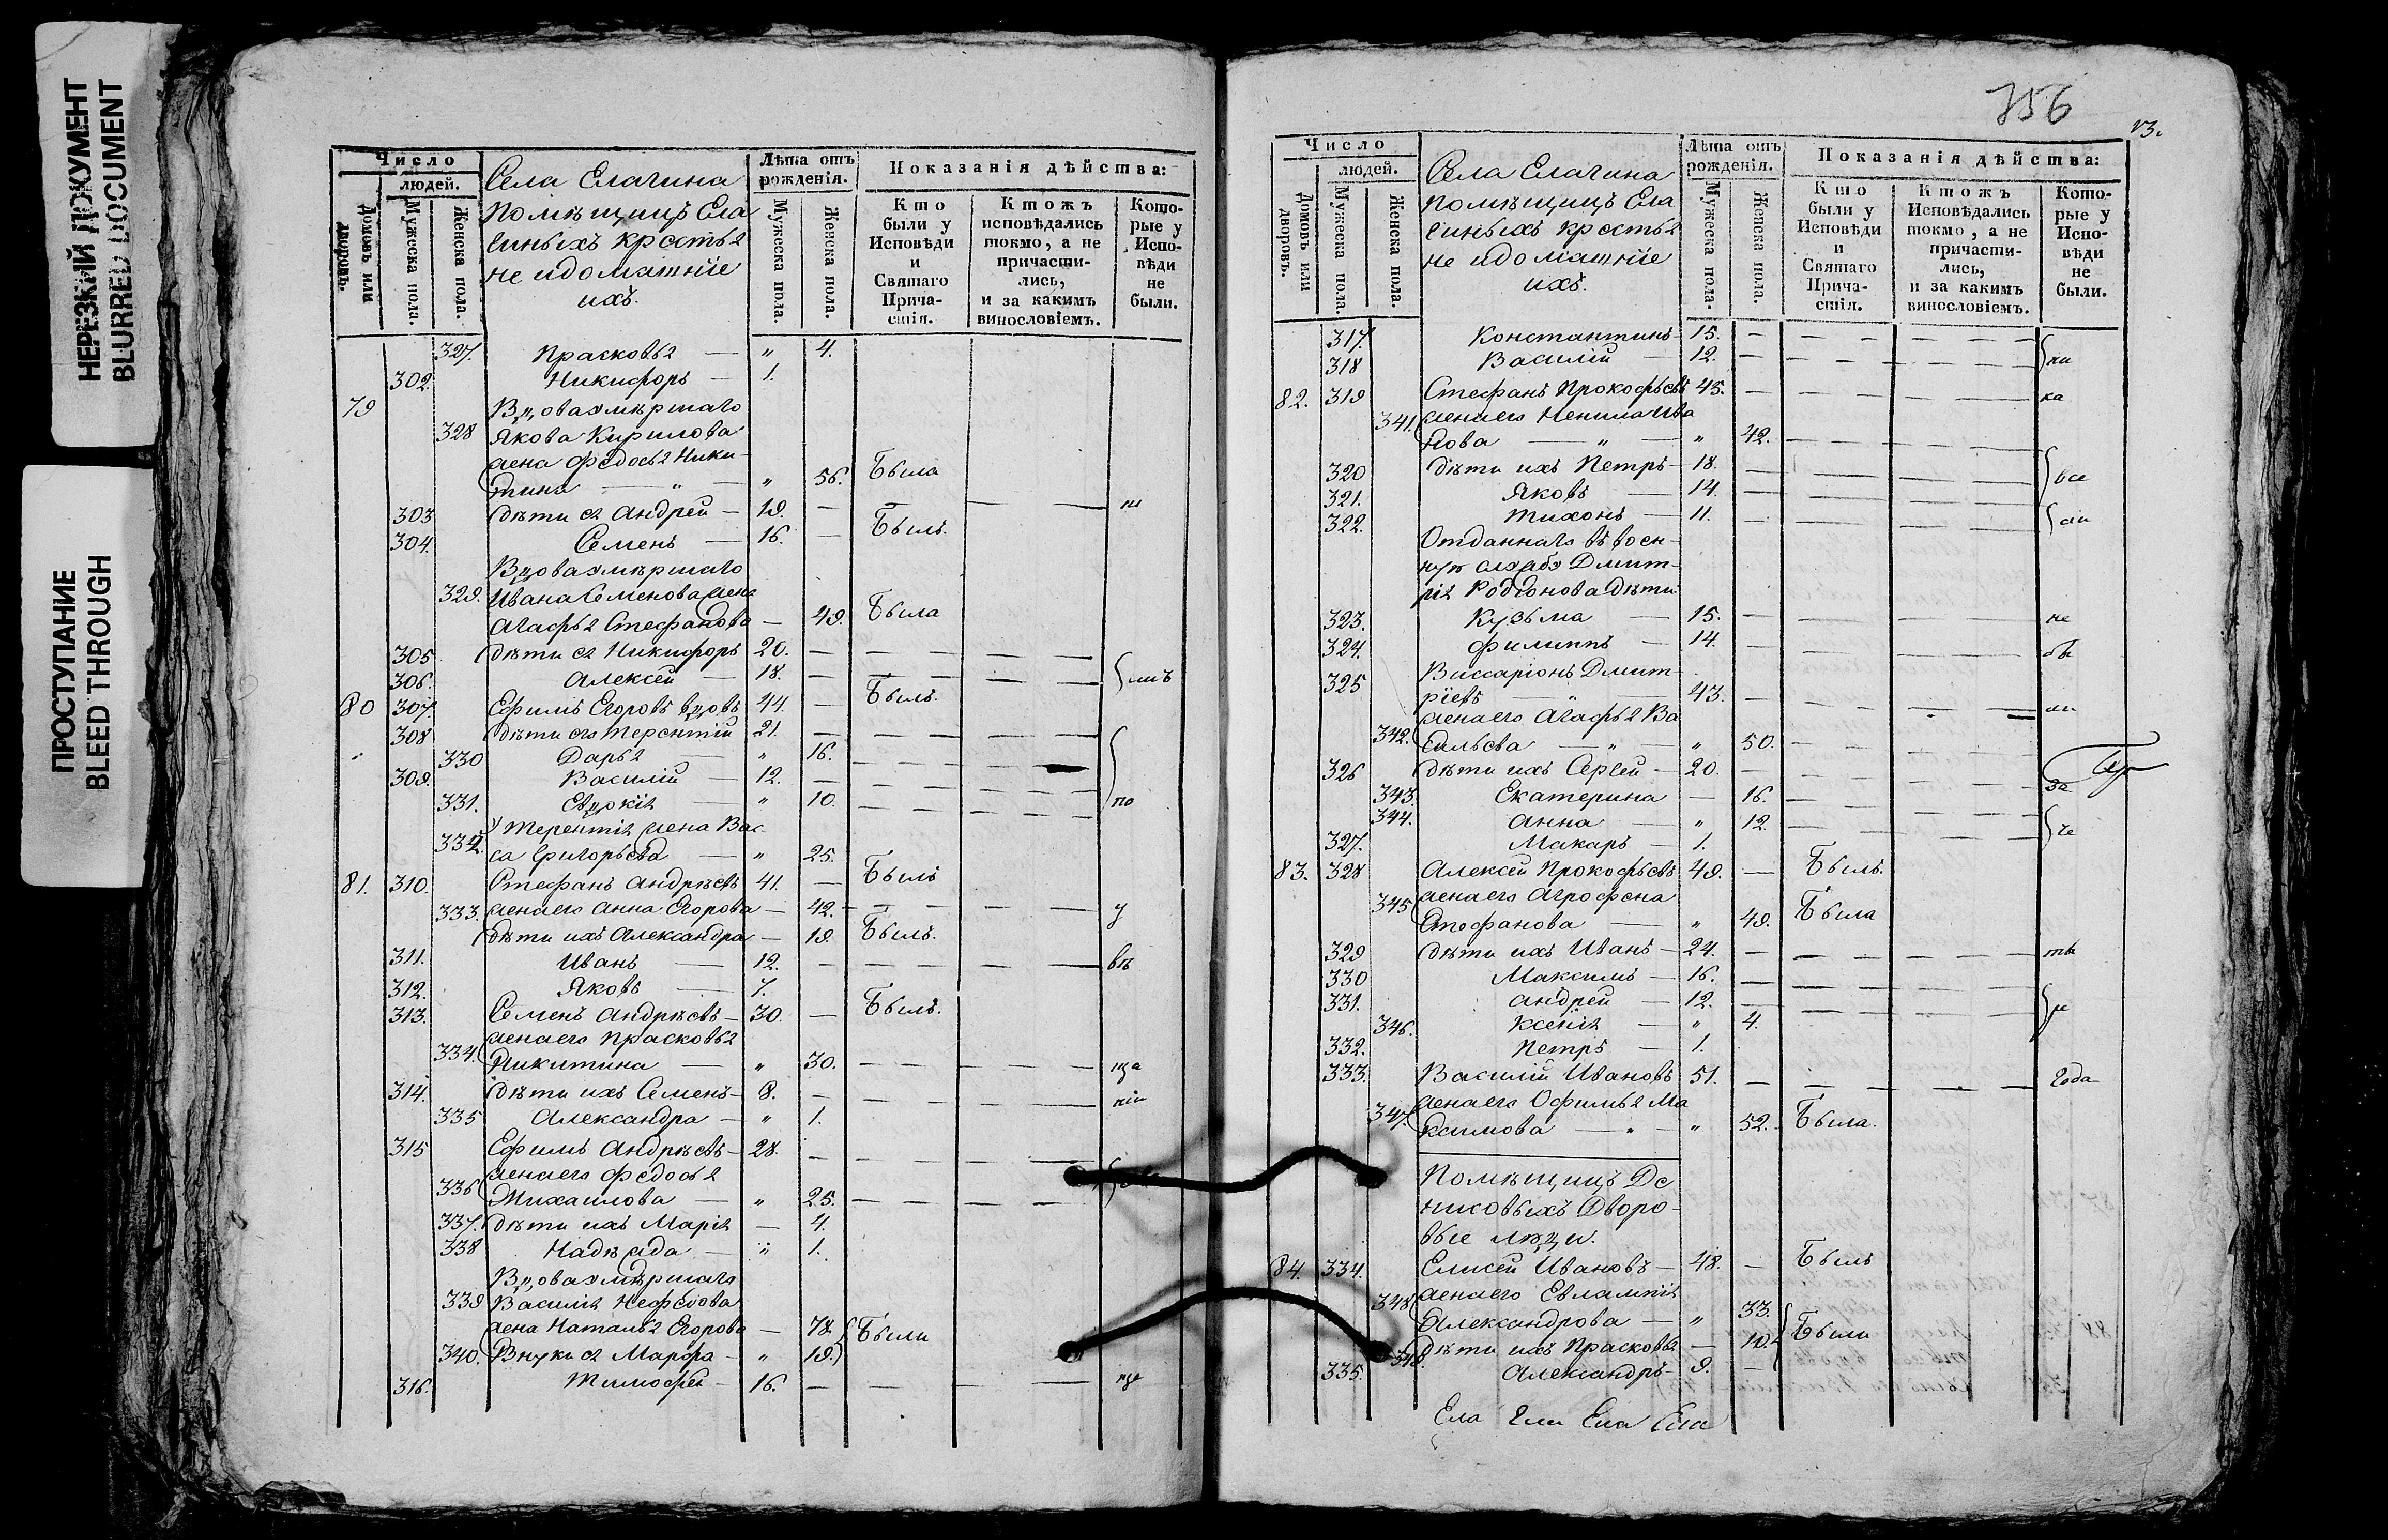 НЕРЕЗКИЙ ДОКУМЕНТ
BLURRED DOCUMENT
ПРОСТУПАНИЕ
BLEED THROUGH
Число
людей.
Домовъ или дворовъ.
Мужеска пола.
Женска пола.
Села Елагина
помѣщицъ Ела
гиныхъ крестья
не идоматніе
ихъ.
Лѣта отъ рожденія.
Мужеска пола.
Женска пола.
Показанія дѣйства:
Кто были у Исповѣди и Святаго Прича-стія.
Ктожъ исповѣдались токмо, а не причасти-лись, и за какимъ винословіемъ.
Кото-рые у Испо-вѣди не были.
327. Прасковья — " 4.
302. Никифоръ — 1.
79 Вдова умѣршаго
328 Якова Кирилова
жена Федосья Ники-
тина — " — " 56. Была
303 дѣти ея Андрей — 19. —
304. Семенъ — 16. — Былъ.
Вдова умѣршаго
329. Ивана Семенова жена
Агафья Стефанова — 49. Была
305 дѣти ея Никифоръ 20. —
306. Алексей — 18. —
80 307. Ефимъ Егоровъ вдовъ 44. — Былъ.
308 дѣти его Терентій 21. —
330 Дарья — " 16.
309. Василій — 12. —
331. Евдокія — " 10. по
332. Терентія жена Вас
са Григорьева — " 25.
81. 310. Стефанъ Андрѣевъ 41. — Былъ
333. жена его Анна Егорова — 42. — у
дѣти ихъ Александра — 19. Былъ.
311. Иванъ — 12. — вѣ
312. Яковъ — 7.
313. Семенъ Андрѣевъ — 30. — Былъ.
жена его Прасковья
334. Никитина — " 30. — ща
314. дѣти ихъ Семенъ — 8. —
335 Александра — " 1.
315 Ефимъ Андрѣевъ — 28. —
жена его Федосья
336 Михаилова — " 25. —
337. дѣти ихъ Марія — 4.
338 Надѣжда — " 1.
Вдова умѣршаго
339 Василія Нефедова
жена Наталья Егорова — 78. Были
340. Внуки ея Марфа — " 19.
316. Тимофей — 16. —
356
73.
Число
людей.
Домовъ или дворовъ.
Мужеска пола.
Женска пола.
Села Елагина
помѣщицъ Ела
гиныхъ крестья
не идоматніе
ихъ.
Лѣта отъ рожденія.
Мужеска пола.
Женска пола.
Показанія дѣйства:
Кто были у Исповѣди и Святаго Прича-стія.
Ктожъ Исповѣдались токмо, а не причасти-лись, и за какимъ винословіемъ.
Кото-рые у Испо-вѣди не были.
317. Константинъ 15. —
318 Василій — 12. —
82. 319 Стефанъ Прокофьевъ 45. — ка
341. жена его Ненила Ива
нова — " — " 42. —
320 дѣти ихъ Петръ — 18. — все
321. Яковъ — 14. —
322. Тихонъ — 11. —
Отданнаго въ воен-
ную службу Дмит-
рія Родіонова дѣти
323. Кузьма — 15. — не
324. Филиппъ — 14. —
325 Виссаріонъ Дмит-
ріевъ — " — 43. —
жена его Агафья Ва
342. сильева — " — " 50. —
326 дѣти ихъ Сергей — 20. — за
343. Екатерина — 16. —
344. Анна — " 12. — че
327. Макаръ — 1.
83. 328 Алексей Прокофьевъ 49. — Былъ.
345 жена его Агрофена
Стефанова — " 49. Была
329 дѣти ихъ Иванъ — 24. —
330 Максимъ — 16. —
331. Андрей — 12. — ре
346. Ксенія — " 4.
332. Петръ — 1.
333. Василій Ивановъ 51. — года
жена его Офимья Ма
347. ксимова — " — " 52. Была.
Помѣщицъ Де
никовыхъ Дворо-
вые люди.
84. 334. Елисей Ивановъ — 48. — Былъ
348 жена его Евлампія
Александрова — " 33. Были
349. дѣти ихъ Прасковья — 10.
335. Александръ — 9. —
Ела Ела Ела Ела